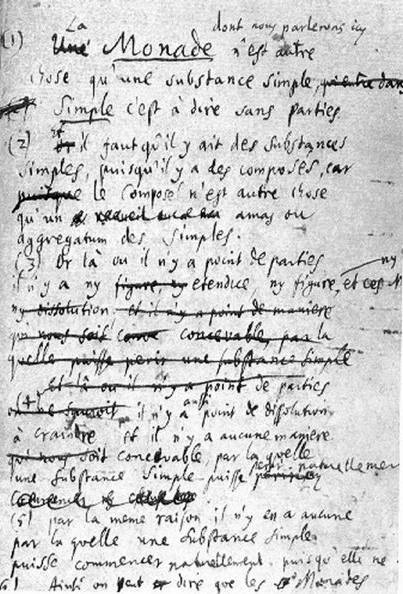 La dont nous parlerons icy
(1) Une Monade n'est autre
chose qu'une substance simple, qui entre dans
Simple c'est à dire sans parties.
(2) Et il faut qu'il y ait des substances
simples, puisqu'il y a des composés, car
puisque le Composé n'est autre chose
qu'un recueil amas ou
aggregatum des simples.
(3) Or là ou il n'y a point de parties ny
il n'y a ny figure ny etendue, ny figure, et ces
ny dissolution et il n'y a point de maniere
qui nous soit concevable, par la
quelle puisse perir une substance simple
Et là ou il n'y a point de parties
(4) il n'y a aussi point de dissolution
à craindre Et il n'y a aucune maniere
qui nous soit concevable, par la quelle
une substance simple puisse perir naturellement
(5) par la meme raison il n'y en a aucune
par la quelle une substance simple
puisse commencer naturellement, puisqu'elle ne
Ainsi on peut dire que les Monades